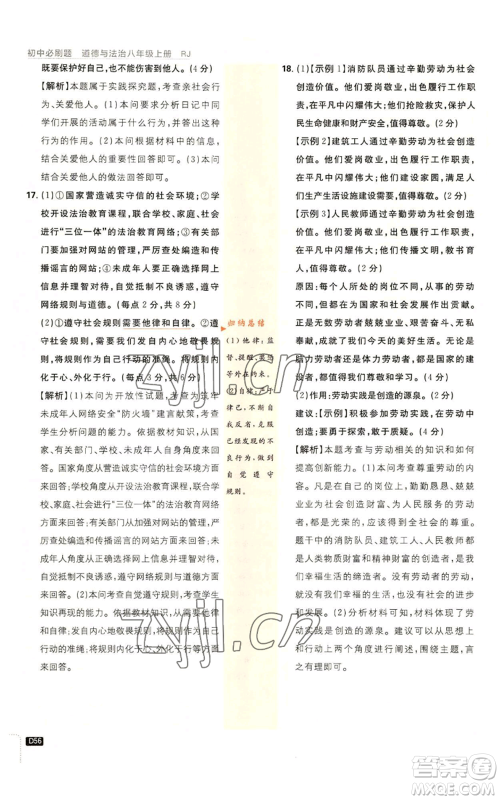 初中必刷题 道德与法治八年级上册 RJ
既要保护好自己,也不能伤害他人。(4分)
【解析】本题属于实践探究题,考查关爱社会、关爱他人。(1)本问要求分析日记中同学们开展的活动属于什么行为,并分析这些行为的作用。(2)本问根据材料中的信息,结合关爱他人的重要性回答即可。
17. (1)①国家营造诚实守信的社会环境;②学校开设法治教育课程,联合学校、家庭、社会进行“三位一体”的法治教育网络;③有关部门要为网络营造安全环境,严厉查处编造和传播谣言的网站;④未成年人要从自身来提高警惕并理智对待,自觉抵制不良诱惑,自觉遵守网络规则与道德。(每点2分,共8分)
(2)①遵守社会规则需要他律和自律。②遵守社会规则,需要我们发自内心地敬畏规则,将规则作为自己行动的准绳。将规则内化于心、外化于行。(每点3分,共6分)
【解析】(1)本问为开放性试题,可从筑牢未成年人网络安全“防火墙”建言献策、贡献力量。国家要营造诚实守信的社会环境方面来回答;学校开设法治教育课程,联合学校、家庭、社会进行“三位一体”的法治教育网络方面来回答;有关部门要为网络营造安全环境,严厉查处编造和传播谣言的网站方面来回答;未成年人要从自身来提高警惕并理智对待,
自觉抵制不良诱惑,自觉遵守网络规则与道德方面来回答。(2)本问可以从需要他律和自律;发自内心地敬畏规则,将规则作为自己行动的准绳、内化于心、外化于行等方面来回答。
归纳总结
(1)他律:监督、提醒、劝导等外在约束。
(2)自律:严于律己、自我反省、克服已经发现的不足、自觉遵守规则。
18. (1)【示例1】消防队员通过辛勤劳动为社会创造价值。他们爱岗敬业,出色履行工作职责,在平凡中闪耀伟大;他们保护社会环境,保护人民生命健康和财产安全,推动社会发展。(2分)
【示例2】建筑工人通过辛勤劳动为社会创造价值。他们爱岗敬业,出色履行工作职责,在平凡中闪耀伟大;他们建设家园,满足人们美好生活需要,推动社会发展。(2分)
【示例3】人民教师通过辛勤劳动为社会创造价值。他们爱岗敬业,出色履行工作职责,在平凡中闪耀伟大;他们教书育人,培养人才,推动社会发展。(2分)
原因:每个劳动者都在自己平凡的工作岗位上,为了国家和社会发展兢兢业业、无私奉献,成就了我们今天的美好生活。(2分)
结论:无论是体力劳动者还是脑力劳动者都值得尊重。(2分)
(2)作用:劳动是创造的源泉。(2分)
建议:【示例】积极参加劳动实践,在劳动中创造;要勇于探索,敢于质疑。(2分)
【解析】本题考查与劳动相关的知识和如何提高创新能力。(1)本问考查尊重劳动的内容。凡是兢兢业业、勤勤恳恳、任劳任怨,为社会创造财富和价值,为人民服务的劳动,都是光荣的,应该得到承认和尊重。题干中的消防队员、建筑工人、人民教师都是物质财富和精神财富的创造者,是我们幸福生活的源泉。正是所有劳动者的劳动,让我们生活得更加幸福,推动着社会的进步和发展。(2)分析材料可知,劳动是社会进步的源泉,实践是创造的源泉。建议可以从思想上和行动上两个角度进行阐述,围绕主题,言之有理即可。
D56
zyjl.cn
zyjl.cn
答案圈
MXQE.COM